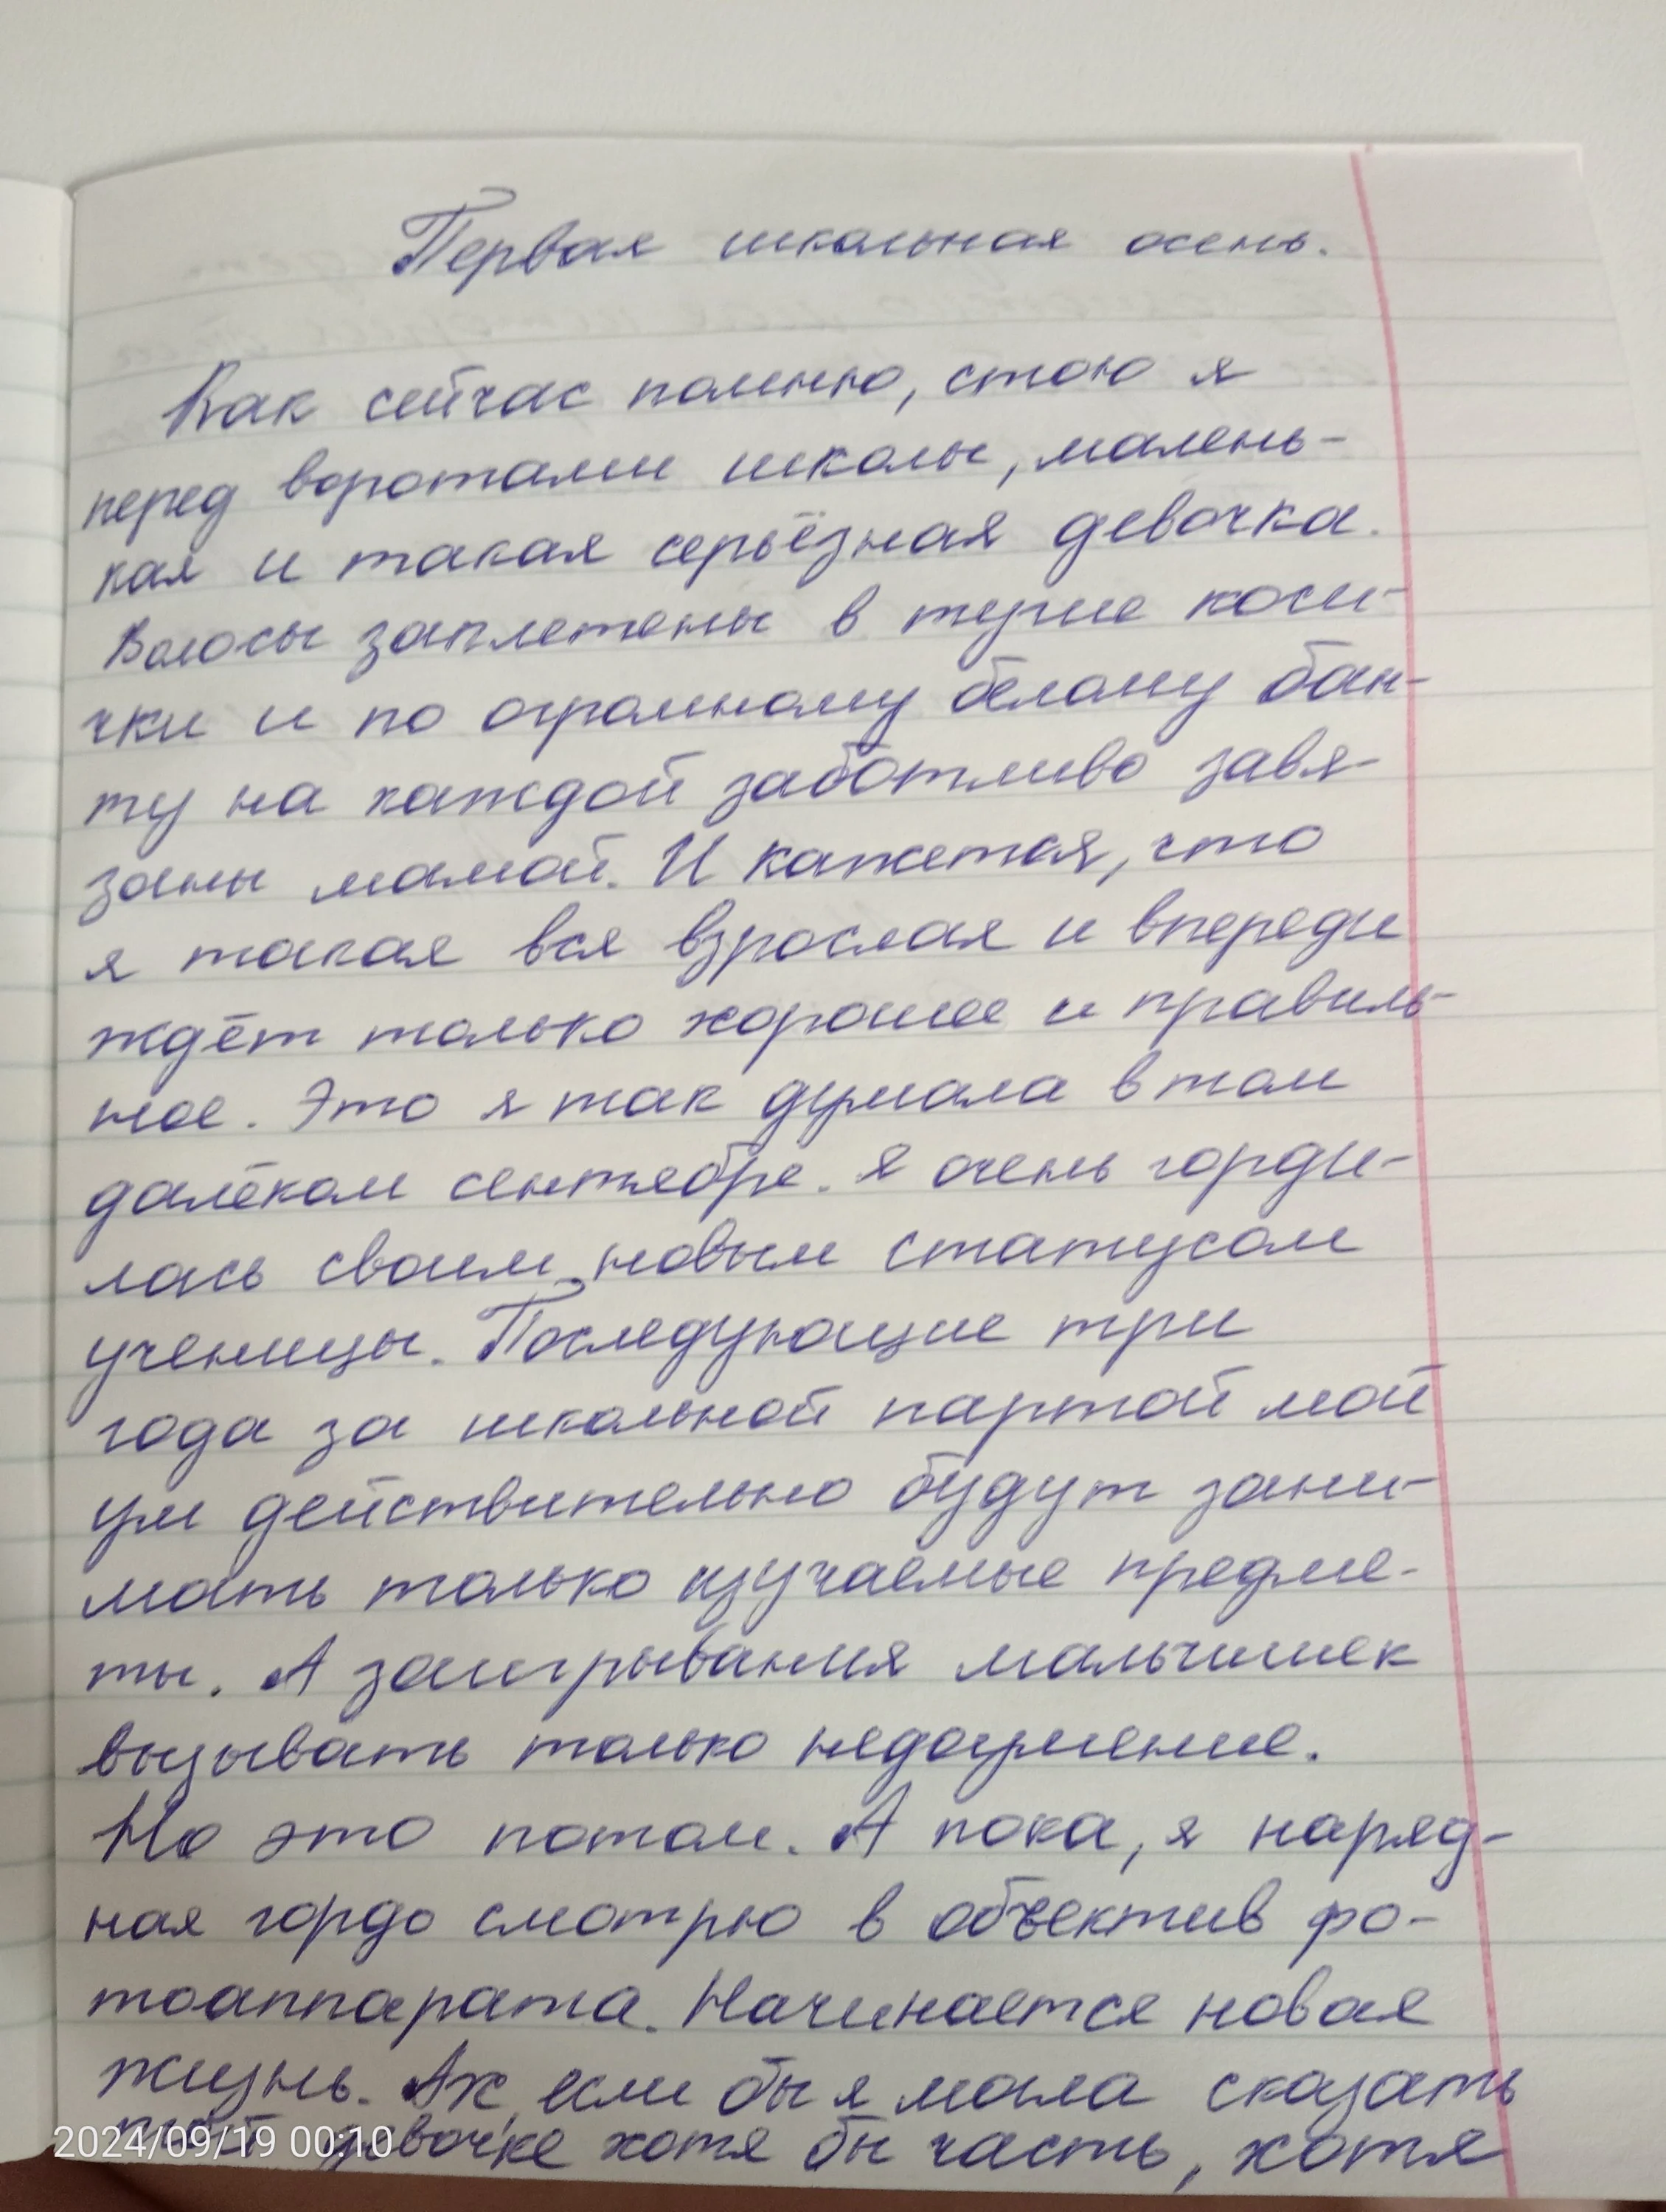 Первая школьная осень.
Как сейчас помню, стою я
перед воротами школы, малень-
кая и такая серьёзная девочка.
Волосы заплетены в тугие коси-
чки и по огромному белому бан-
ту на каждой заботливо завя-
заны мамой. И кажется, что
я такая вся взрослая и впереди
ждёт только хорошее и правиль-
ное. Это я так думала в том
далёком сентябре. Я очень горди-
лась своим новым статусом
ученицы. Последующие три
года за школьной партой мой
ум действительно будут зани-
мать только изучаемые предме-
ты. А заигрывания мальчишек
вызывать только недоумение.
Но это потом. А пока, я наряд-
ная гордо смотрю в объектив фо-
тоаппарата. Начинается новая
жизнь. Ах, если бы я могла сказать
той девочке хотя бы часть, хотя
2024/09/19 00:10